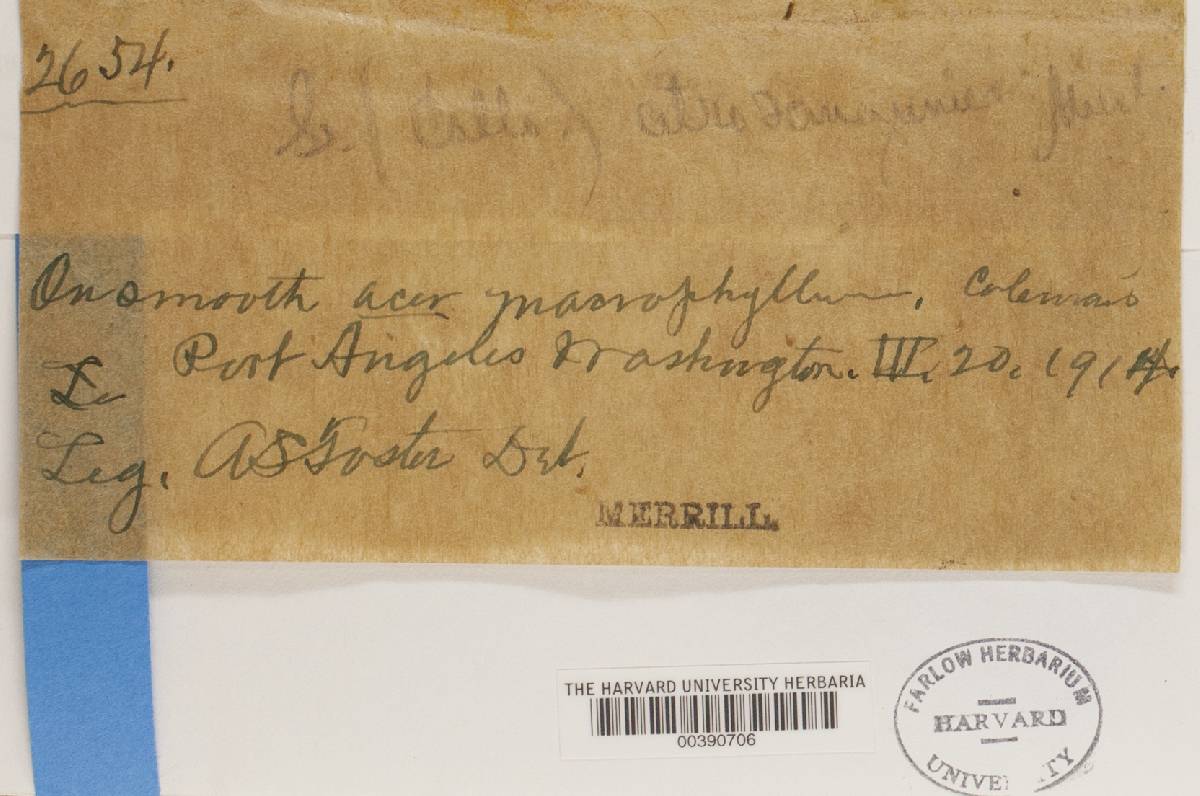 2654.
On smooth acer macrophyllum,
Port Angeles Washington. III. 20. 1914.
L
Leg. AS Foster Det.
MERRILL.
THE HARVARD UNIVERSITY HERBARIA
00390706
FARLOW HERBARIUM
HARVARD